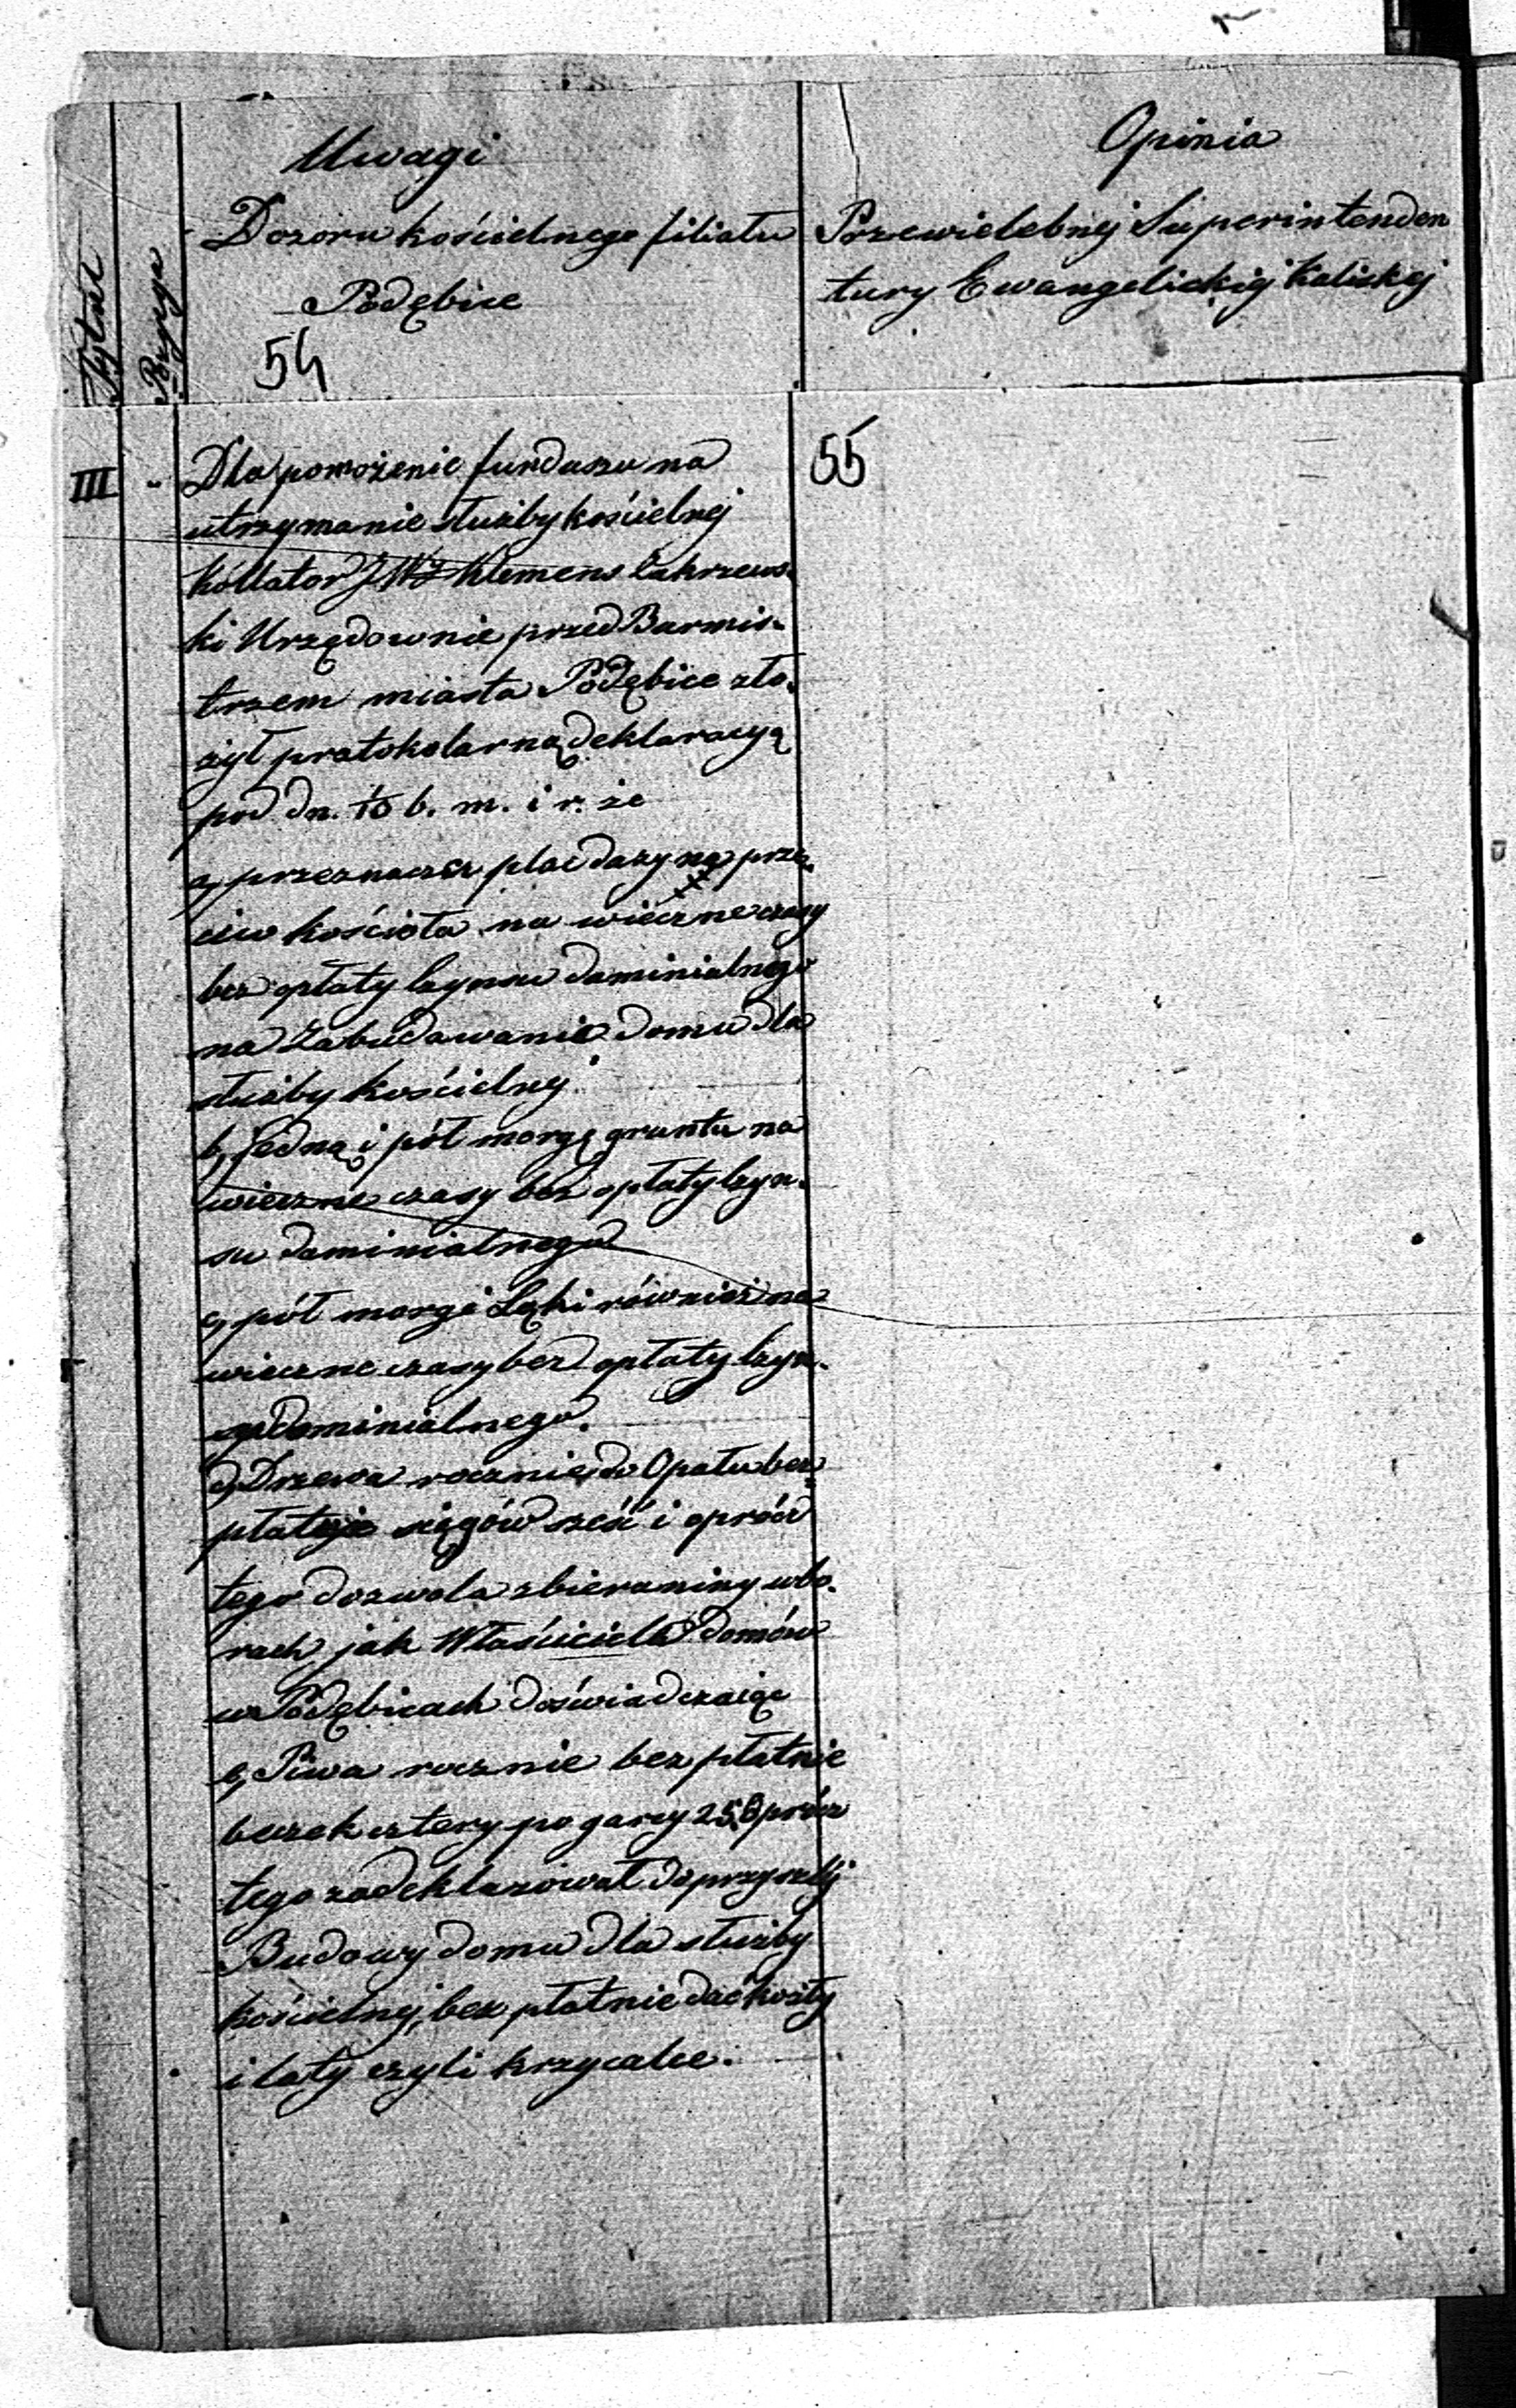 Tytuł
Pozycya
Uwagi
Dozoru kościelnego filiału
Podębice
54
Opinia
Przewielebnej Superintenden
tury Ewangelickiej Kaliskiej
55
III
Dla pomożenie funduszu na
utrzymanie służby kościelnej
kollator JW Klemens Zakrzews-
ki Urzędownie przed Burmis-
trzem miasta Podębice zło-
żył protokolarną deklaracyą
pod dn. 10 b. m. i r. że
a, przeznacza plac duży na prze-
ciw kościoła na wieczne czasy
bez opłaty Czynszu dominialnego
na Zabudowanie domu dla
służby kościelnej
b, Jedną i pół morgę gruntu na
wieczne czasy bez opłaty Czyn-
su dominialnego
c, pół morgi Łąki również na
wieczne czasy bez opłaty Czyn-
su dominialnego.
d, Drzewa rocznie do Opału bez
płatnie siągów sześć i oprócz
tego dozwala zbieraniny w bo-
rach, jak Właściciele Domów
w Podębicach doświadczaią
e, Piwa rocznie bez płatnie
beczek cztery po garcy 25. Oprócz
tego zadeklarował do przyszłej
Budowy domu dla służby
kościelnej, bez płatnie dać kozły
i łaty czyli